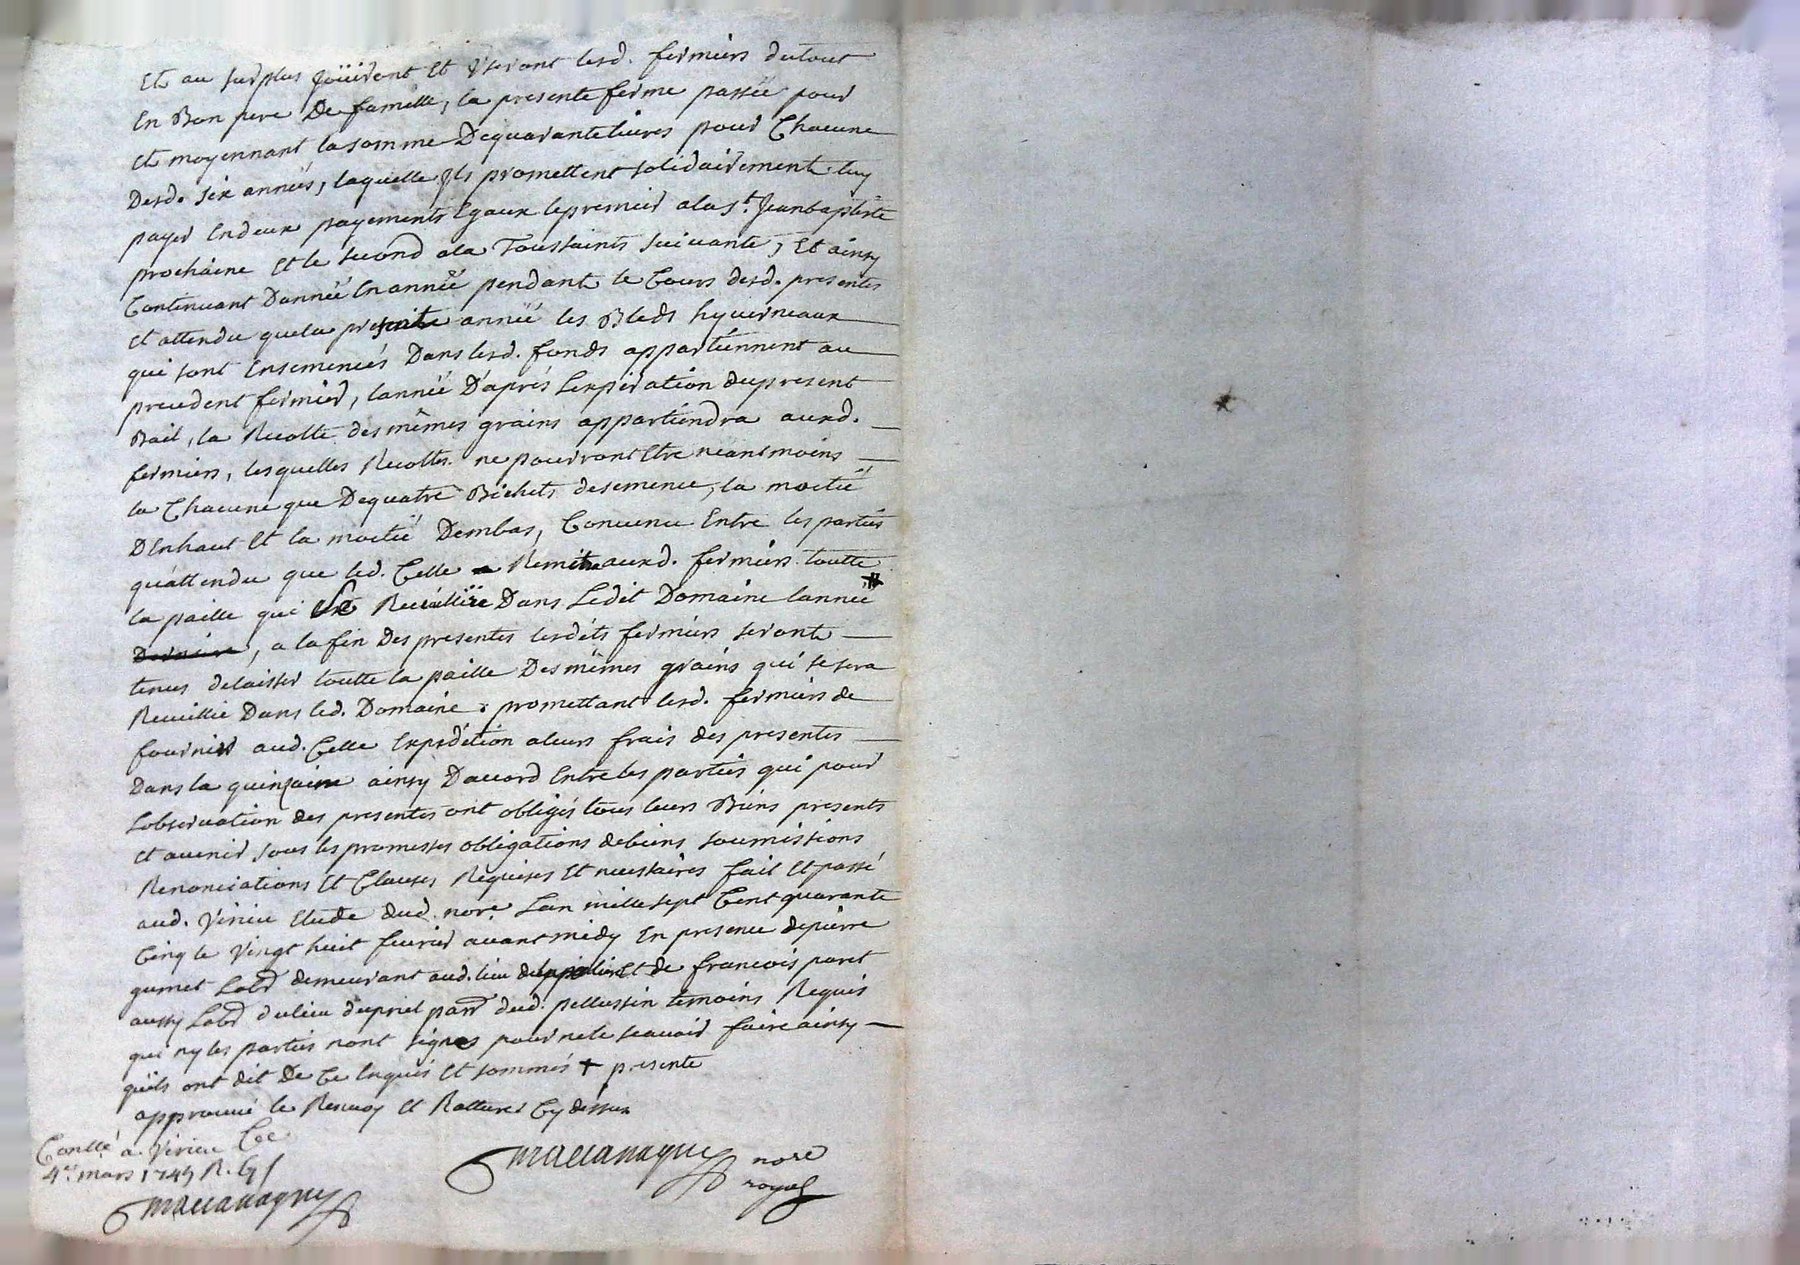 Et au surplus Joüiront et Useront lesd. fermiers dutout
En Bon pere De famille, la presente ferme passée pour
et moyennant lasomme Dequarantelivres pour Chacune
Desd. six années, laquelle Ils promettent solidairement luy
payer Endeux payements Egaux lepremier alas.t Jeanbaptiste
prochaine et le second ala Toussaints suivante, Et ainsy
Continuant Dannée Enannée pendant le Cours desd. presentes
et attendu quela presente année les Bleds hyverneaux
qui sont Ensemencés Dans lesd. fonds appartiennent au
precedent fermier, lannée D'aprés Lexpiration dupresent
Bail, la Recolte des mêmes grains appartiendra auxd.
fermiers, lesquelles Recoltes ne pourront Etre néantmoins
la Chacune que Dequatre Bichets desemence, la moitié
DEnhaut et la moitié Dembas, Convenu Entre les parties
quattendu que led. Celle Remit auxd. fermiers toutte
la paille qui se Recüillire Dans Ledit Domaine lannée
, a lafin Des presentes lesdits fermiers seront
tenus delaisser toutte la paille Desmêmes grains qui sesera
Recuillie Dans led. Domaine : promettant lesd. fermiers de
fournir aud. Celle Expedition aleurs frais des presentes
Dans la quinzaine ainsy Daccord Entreles parties qui pour
Lobservation des presentes ont obligés tous leurs Biens presents
et avenir sous les promesses obligations debiens soumissions
Renonciations et Clauses Requises et necessaires fait et passé
aud. Virieu Etude dud. no.re Lan mille sept Cent quarante
Cinq le Vingt huit fevrier avant midy En presence depierre
gumet Lab.r demeurant aud. lieu et de francois paret
aussy Lab.r dulieu dupriel parr. dud. pellussin temoins Requis
qui ny les parties nont signes pour nele scavoir faire ainsy
quils ont dit De Ce Enquis et sommés + presente
approuvé le Renvoy et Ratture Cy dessus
Contlé a Virieu Ce
4.e mars 1745 R.
no.re
royal